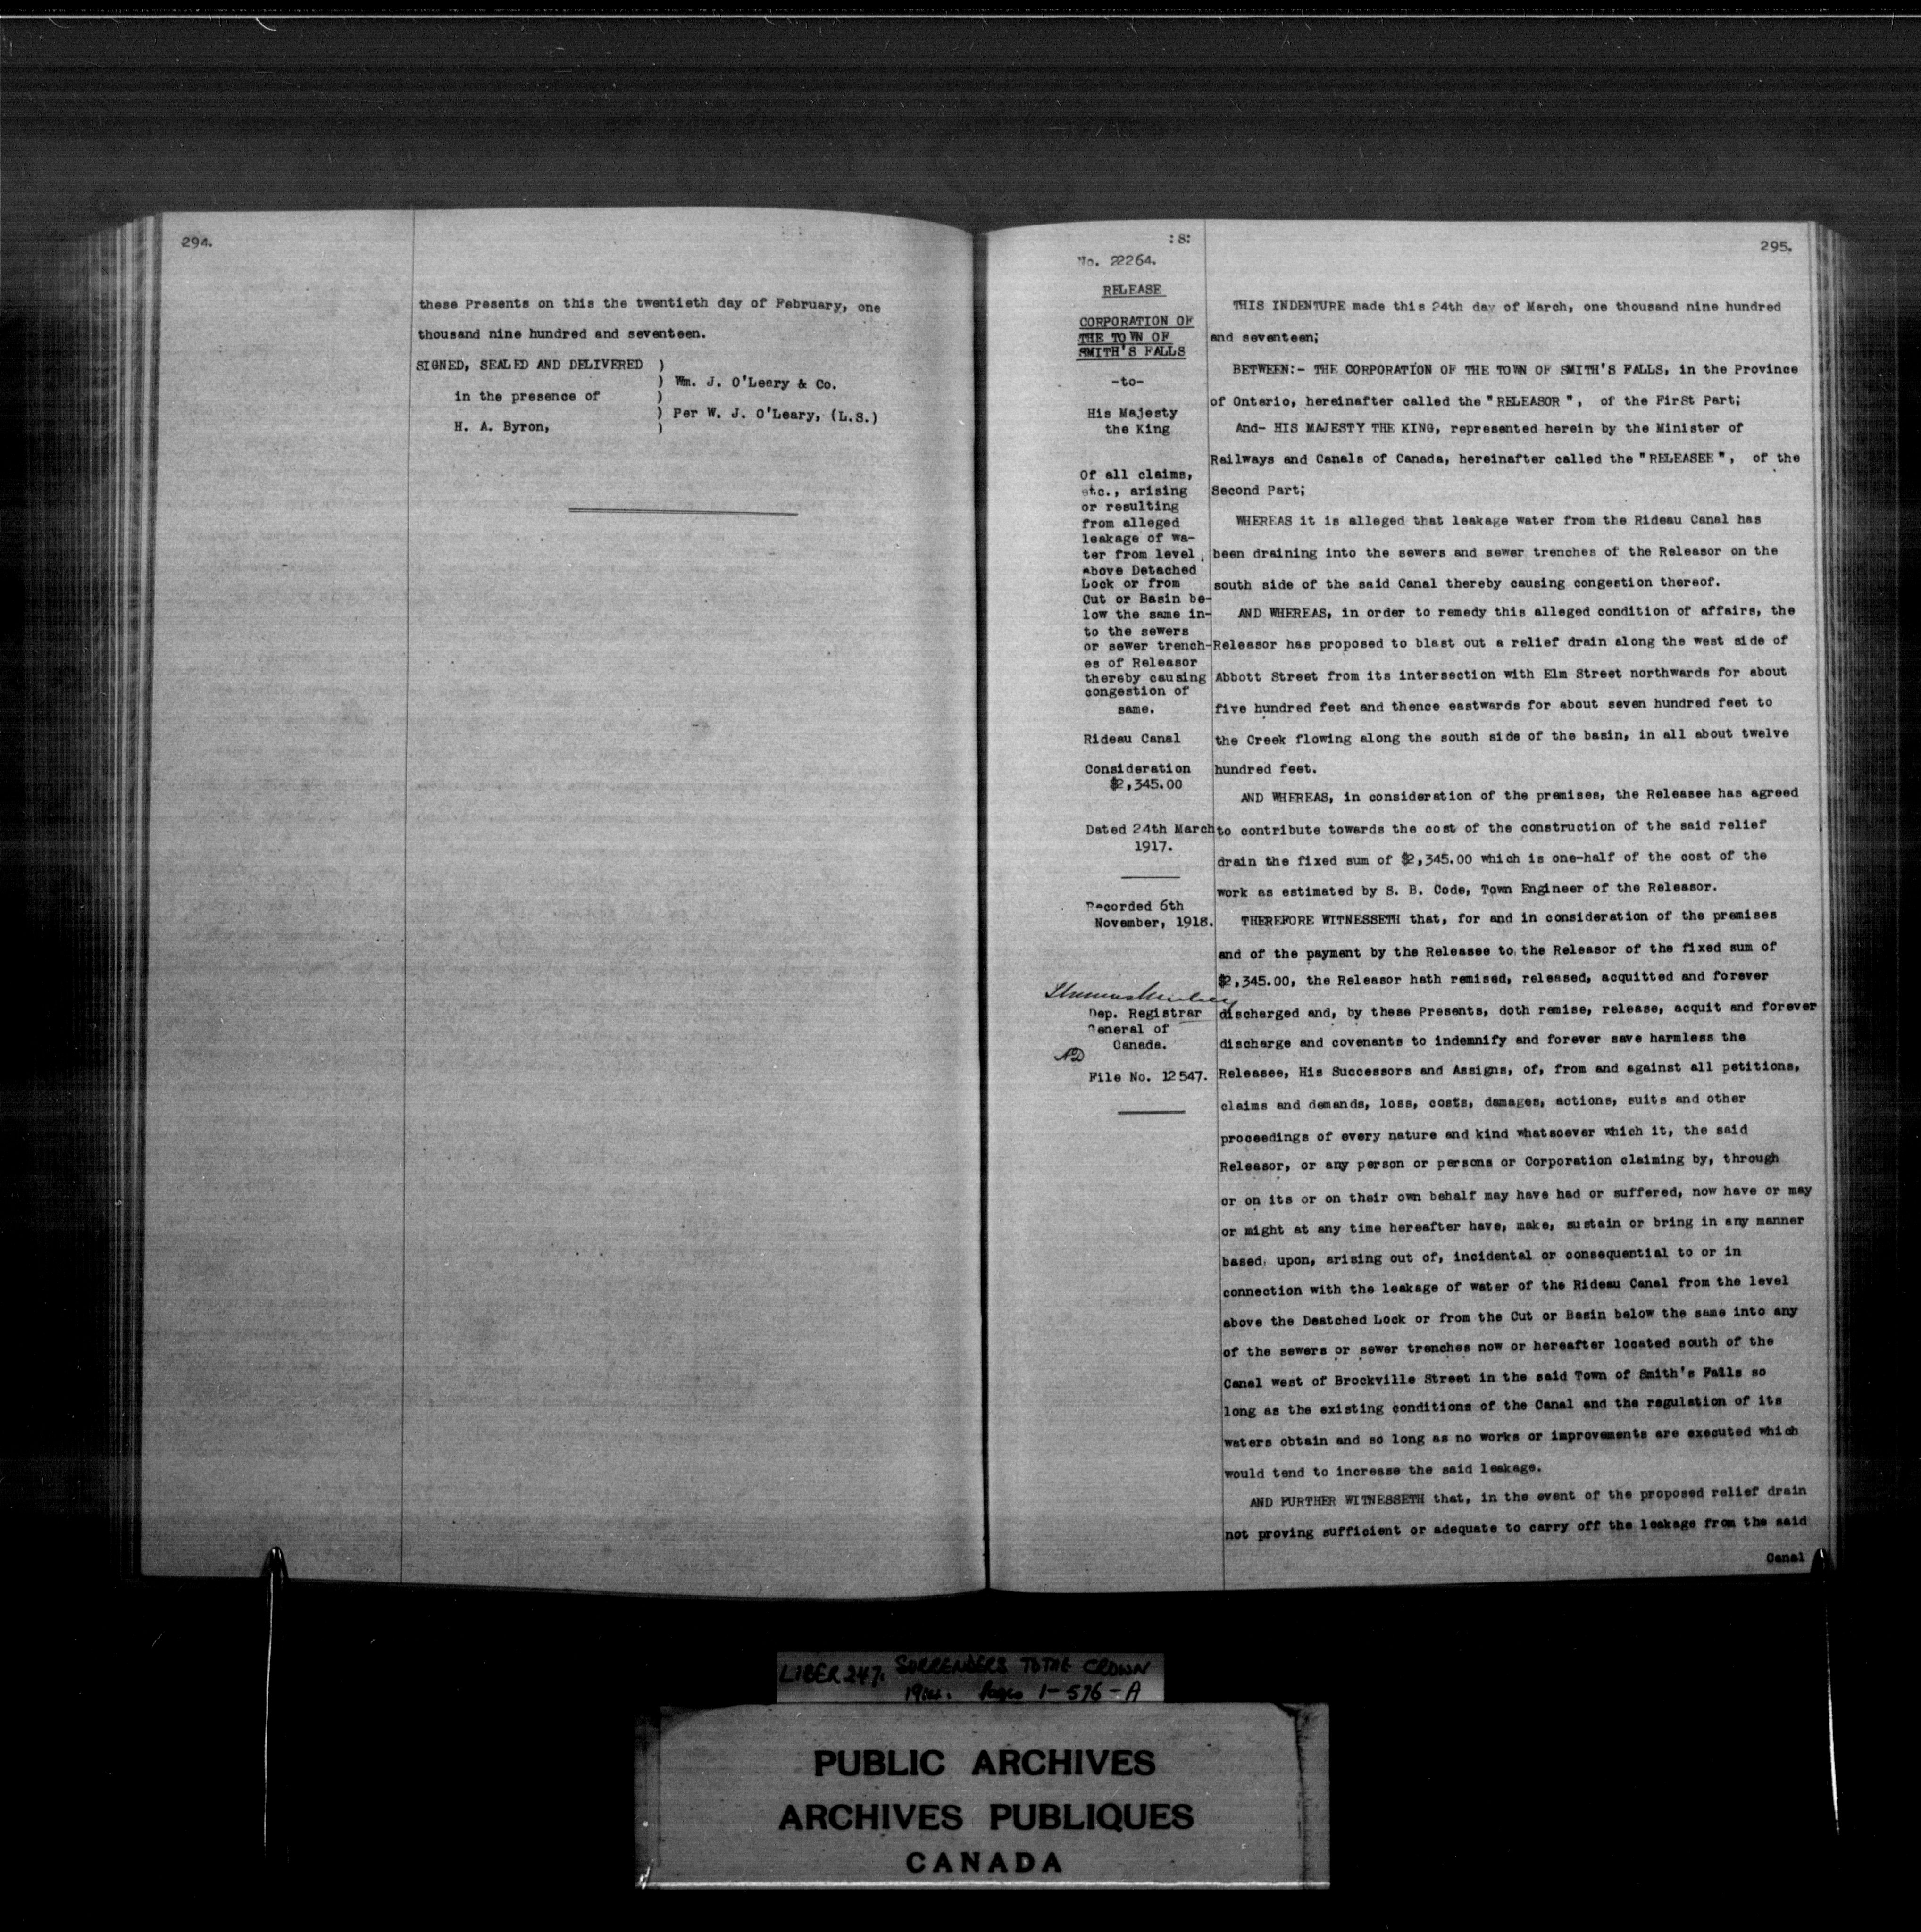 294.
these Presents on this the twentieth day of February, one
thousand nine hundred and seventeen.
SIGNED, SEALED AND DELIVERED )
) Wm. J. O'Leary & Co.
in the presence of )
) Per W. J. O'Leary, (L.S.)
H. A. Byron, )
:8:
295.
No. 22264.
RELEASE
CORPORATION OF
THE TOWN OF
SMITH'S FALLS
-to-
His Majesty
the King
Of all claims,
etc., arising
or resulting
from alleged
leakage of wa-
ter from level
above Detached
Lock or from
Cut or Basin be-
low the same in-
to the sewers
or sewer trench-
es of Releasor
thereby causing
congestion of
same.
Rideau Canal
Consideration
$2,345.00
Dated 24th March
1917.
Recorded 6th
November, 1918.
Dep. Registrar
General of
Canada.
File No. 12547.
THIS INDENTURE made this 24th day of March, one thousand nine hundred
and seventeen;
BETWEEN:- THE CORPORATION OF THE TOWN OF SMITH'S FALLS, in the Province
of Ontario, hereinafter called the "RELEASOR", of the First Part;
And- HIS MAJESTY THE KING, represented herein by the Minister of
Railways and Canals of Canada, hereinafter called the "RELEASEE", of the
Second Part;
WHEREAS it is alleged that leakage water from the Rideau Canal has
been draining into the sewers and sewer trenches of the Releasor on the
south side of the said Canal thereby causing congestion thereof.
AND WHEREAS, in order to remedy this alleged condition of affairs, the
Releasor has proposed to blast out a relief drain along the west side of
Abbott Street from its intersection with Elm Street northwards for about
five hundred feet and thence eastwards for about seven hundred feet to
the Creek flowing along the south side of the basin, in all about twelve
hundred feet.
AND WHEREAS, in consideration of the premises, the Releasee has agreed
to contribute towards the cost of the construction of the said relief
drain the fixed sum of $2,345.00 which is one-half of the cost of the
work as estimated by S. B. Code, Town Engineer of the Releasor.
THEREFORE WITNESSETH that, for and in consideration of the premises
and of the payment by the Releasee to the Releasor of the fixed sum of
$2,345.00, the Releasor hath remised, released, acquitted and forever
discharged and, by these Presents, doth remise, release, acquit and forever
discharge and covenants to indemnify and forever save harmless the
Releasee, His Successors and Assigns, of, from and against all petitions,
claims and demands, loss, costs, damages, actions, suits and other
proceedings of every nature and kind whatsoever which it, the said
Releasor, or any person or persons or Corporation claiming by, through
or on its or on their own behalf may have had or suffered, now have or may
or might at any time hereafter have, make, sustain or bring in any manner
based upon, arising out of, incidental or consequential to or in
connection with the leakage of water of the Rideau Canal from the level
above the Deatched Lock or from the Cut or Basin below the same into any
of the sewers or sewer trenches now or hereafter located south of the
Canal west of Brockville Street in the said Town of Smith's Falls so
long as the existing conditions of the Canal and the regulation of its
waters obtain and so long as no works or improvements are executed which
would tend to increase the said leakage.
AND FURTHER WITNESSETH that, in the event of the proposed relief drain
not proving sufficient or adequate to carry off the leakage from the said
Canal
LIBER 247. SURRENDERS TO THE CROWN
Pages 1-576-A
PUBLIC ARCHIVES
ARCHIVES PUBLIQUES
CANADA